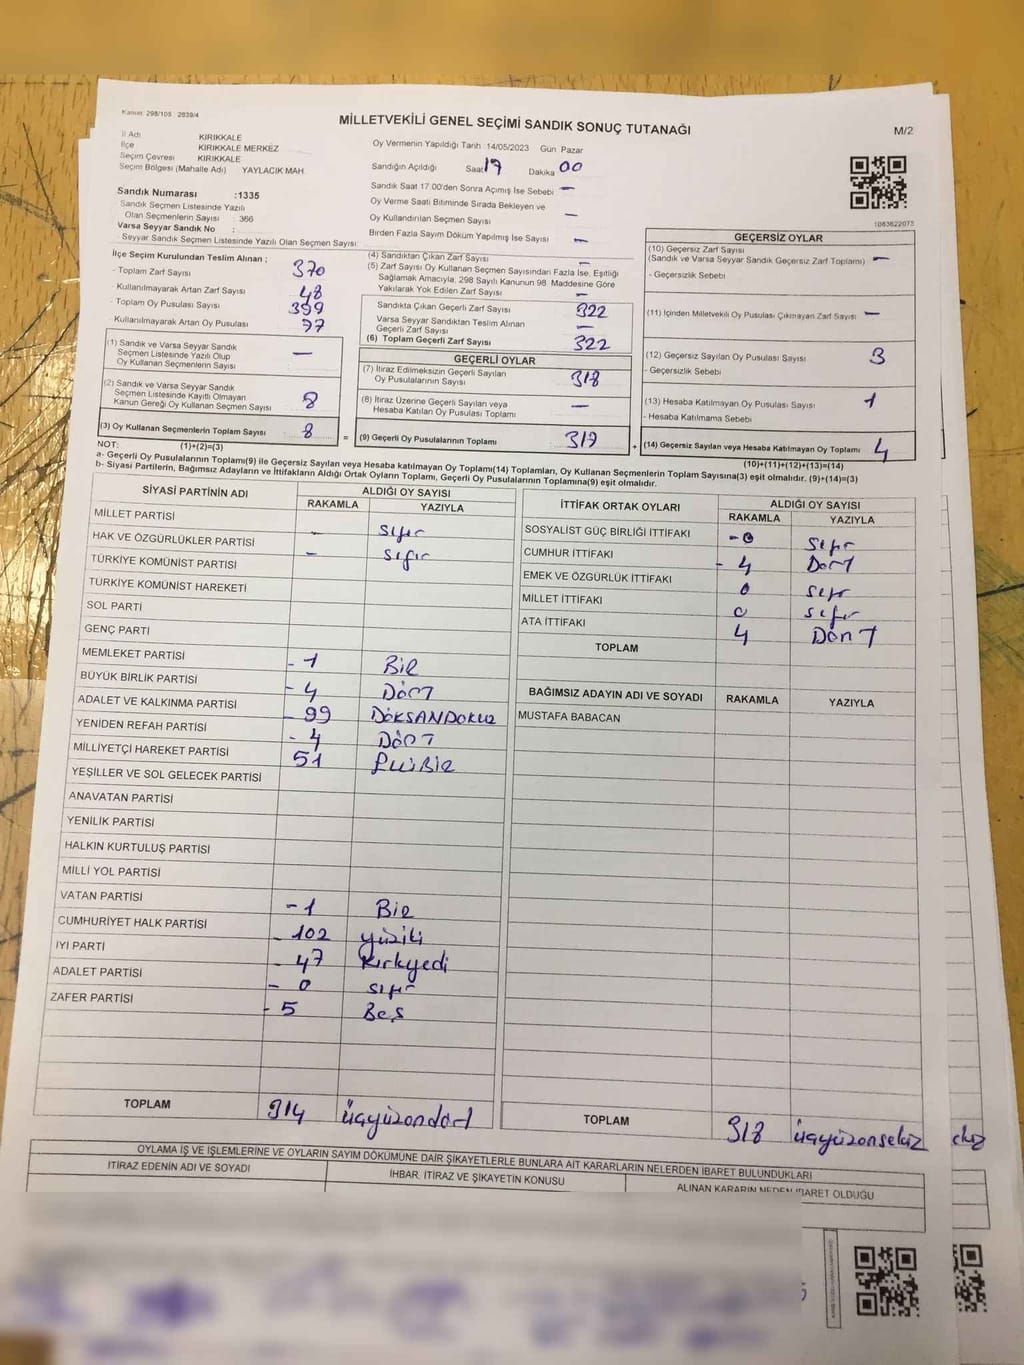 Kanun: 298/105 2839/4
MİLLETVEKİLİ GENEL SEÇİMİ SANDIK SONUÇ TUTANAĞI
M/2
İl Adı KIRIKKALE
İlçe KIRIKKALE MERKEZ
Seçim Çevresi KIRIKKALE
Seçim Bölgesi (Mahalle Adı) YAYLACIK MAH.
Oy Vermenin Yapıldığı Tarih 14/05/2023 Gün Pazar
Sandığın Açıldığı Saat 17 Dakika 00
Sandık Saat 17.00'den Sonra Açımış İse Sebebi —
Oy Verme Saati Bitiminde Sırada Bekleyen ve
Oy Kullandırılan Seçmen Sayısı —
Birden Fazla Sayım Döküm Yapılmış İse Sayısı —
Sandık Numarası :1335
Sandık Seçmen Listesinde Yazılı
Olan Seçmenlerin Sayısı : 366
Varsa Seyyar Sandık No :
Seyyar Sandık Seçmen Listesinde Yazılı Olan Seçmen Sayısı:
1083622073
İlçe Seçim Kurulundan Teslim Alınan ;
- Toplam Zarf Sayısı 370
- Kullanılmayarak Artan Zarf Sayısı 48
- Toplam Oy Pusulası Sayısı 399
- Kullanılmayarak Artan Oy Pusulası 77
(1) Sandık ve Varsa Seyyar Sandık
Seçmen Listesinde Yazılı Olup
Oy Kullanan Seçmenlerin Sayısı —
(2) Sandık ve Varsa Seyyar Sandık
Seçmen Listesinde Kayıtlı Olmayan
Kanun Gereği Oy Kullanan Seçmen Sayısı 8
(3) Oy Kullanan Seçmenlerin Toplam Sayısı 8
(4) Sandıktan Çıkan Zarf Sayısı —
(5) Zarf Sayısı Oy Kullanan Seçmen Sayısından Fazla İse, Eşitliği
Sağlamak Amacıyla, 298 Sayılı Kanunun 98. Maddesine Göre
Yakılarak Yok Edilen Zarf Sayısı —
Sandıkta Çıkan Geçerli Zarf Sayısı 322
Varsa Seyyar Sandıktan Teslim Alınan
Geçerli Zarf Sayısı —
(6) Toplam Geçerli Zarf Sayısı 322
GEÇERLİ OYLAR
(7) İtiraz Edilmeksizin Geçerli Sayılan
Oy Pusulalarının Sayısı 318
(8) İtiraz Üzerine Geçerli Sayılan veya
Hesaba Katılan Oy Pusulası Toplamı —
= (9) Geçerli Oy Pusulalarının Toplamı
GEÇERSİZ OYLAR
(10) Geçersiz Zarf Sayısı
(Sandık ve Varsa Seyyar Sandık Geçersiz Zarf Toplamı) —
- Geçersizlik Sebebi
(11) İçinden Milletvekili Oy Pusulası Çıkmayan Zarf Sayısı —
(12) Geçersiz Sayılan Oy Pusulası Sayısı 3
- Geçersizlik Sebebi
(13) Hesaba Katılmayan Oy Pusulası Sayısı 1
- Hesaba Katılmama Sebebi
+ (14) Geçersiz Sayılan veya Hesaba Katılmayan Oy Toplamı 4
NOT: (1)+(2)=(3)
(10)+(11)+(12)+(13)=(14)
a- Geçerli Oy Pusulalarının Toplamı(9) ile Geçersiz Sayılan veya Hesaba katılmayan Oy Toplamı(14) Toplamları, Oy Kullanan Seçmenlerin Toplam Sayısına(3) eşit olmalıdır. (9)+(14)=(3)
b- Siyasi Partilerin, Bağımsız Adayların ve İttifakların Aldığı Ortak Oyların Toplamı, Geçerli Oy Pusulalarının Toplamına(9) eşit olmalıdır.
SİYASİ PARTİNİN ADI ALDIĞI OY SAYISI
RAKAMLA YAZIYLA
MİLLET PARTİSİ
HAK VE ÖZGÜRLÜKLER PARTİSİ – sıfır
TÜRKİYE KOMÜNİST PARTİSİ – sıfır
TÜRKİYE KOMÜNİST HAREKETİ
SOL PARTİ
GENÇ PARTİ
MEMLEKET PARTİSİ -1 BİR
BÜYÜK BİRLİK PARTİSİ -4 DÖRT
ADALET VE KALKINMA PARTİSİ -99 DOKSANDOKUZ
YENİDEN REFAH PARTİSİ -4 DÖRT
MİLLİYETÇİ HAREKET PARTİSİ 51 ELLİBİR
YEŞİLLER VE SOL GELECEK PARTİSİ
ANAVATAN PARTİSİ
YENİLİK PARTİSİ
HALKIN KURTULUŞ PARTİSİ
MİLLİ YOL PARTİSİ
VATAN PARTİSİ -1 BİR
CUMHURİYET HALK PARTİSİ -102 yüziki
İYİ PARTİ -47 kırkyedi
ADALET PARTİSİ -0 sıfır
ZAFER PARTİSİ -5 Beş
TOPLAM 314 üçyüzondört
İTTİFAK ORTAK OYLARI ALDIĞI OY SAYISI
RAKAMLA YAZIYLA
SOSYALİST GÜÇ BİRLİĞİ İTTİFAKI -0 Sıfır
CUMHUR İTTİFAKI -4 Dört
EMEK VE ÖZGÜRLÜK İTTİFAKI 0 sıfır
MİLLET İTTİFAKI 0 sıfır
ATA İTTİFAKI 4 DÖRT
TOPLAM
BAĞIMSIZ ADAYIN ADI VE SOYADI RAKAMLA YAZIYLA
MUSTAFA BABACAN
TOPLAM 318 üçyüzonsekiz
OYLAMA İŞ VE İŞLEMLERİNE VE OYLARIN SAYIM DÖKÜMÜNE DAİR ŞİKAYETLERLE BUNLARA AİT KARARLARIN NELERDEN İBARET BULUNDUKLARI
İTİRAZ EDENİN ADI VE SOYADI İHBAR, İTİRAZ VE ŞİKAYETİN KONUSU ALINAN KARARIN NEDEN İBARET OLDUĞU